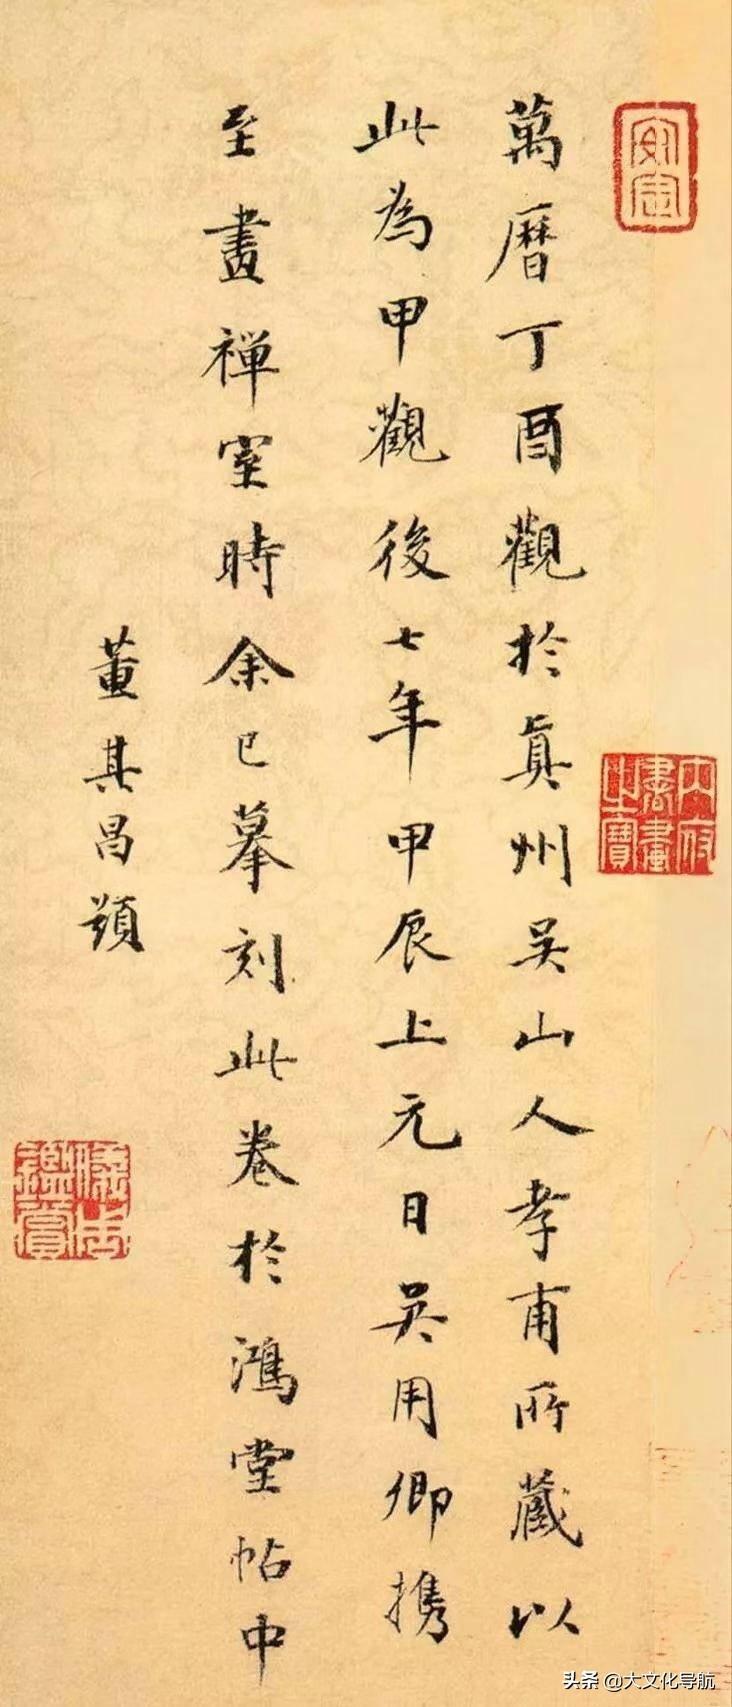 萬曆丁酉觀於眞州吳山人孝甫所藏以
此為甲觀後七年甲辰上元日吳用卿携
至畫禪室時余已摹刻此卷於鴻堂帖中
董其昌題
內府書畫之寶
头条 @大文化导航